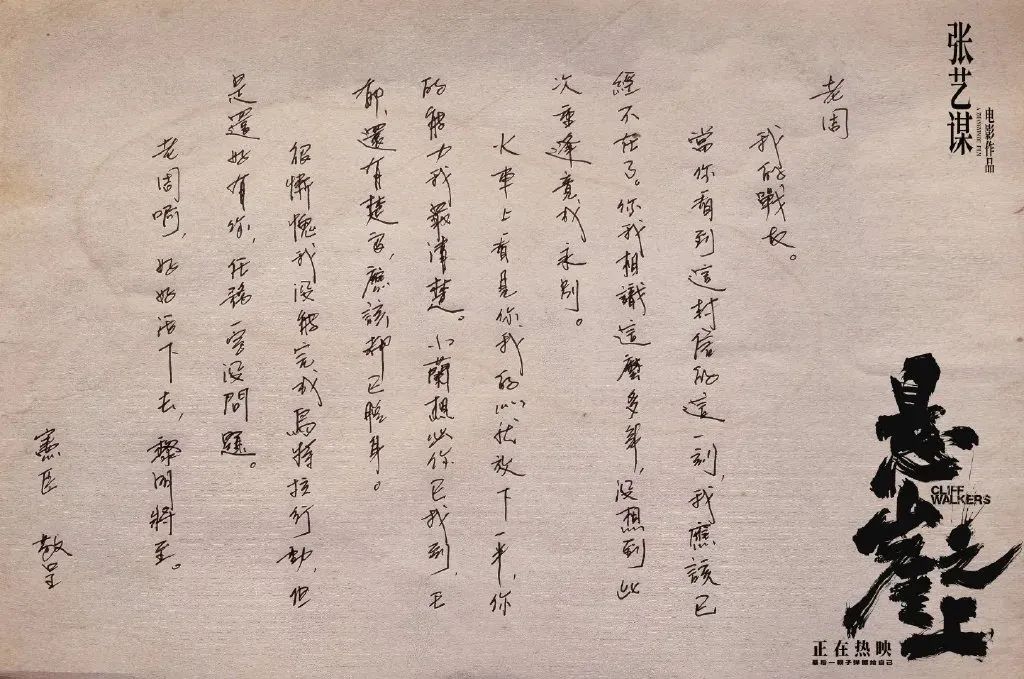 张艺谋
电影作品
老周
我的戰友。
當你看到這封信的這一刻,我應該已
經不在了。你我相識這麼多年,沒想到此
次重逢竟成永別。
火車上看見你,我的心就放下一半,你
的能力我最清楚。小蘭想必你已找到,王
郁,還有楚良,應該都已脫身。
很慚愧我沒能完成烏特拉行動,但
是還好有你,任務一定沒問題。
老周啊,好好活下去,黎明將至。
憲臣 敬呈
悬崖之上
CLIFF
WALKERS
正在热映
最后一颗子弹留给自己